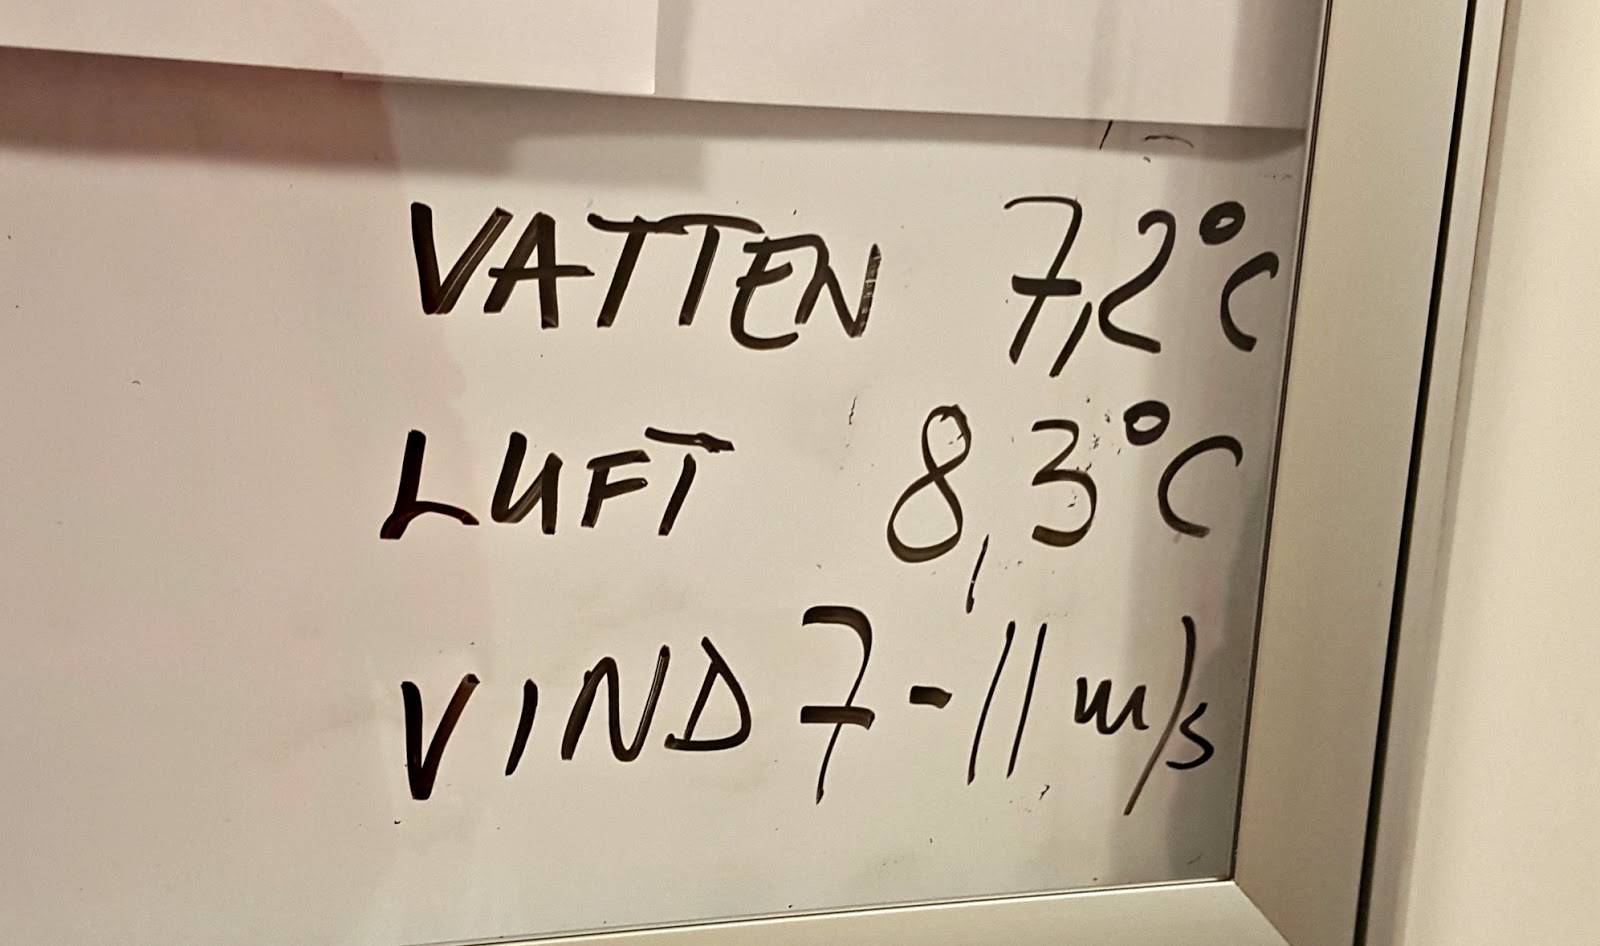 VATTEN 7,2°C
LUFT 8,3°C
VIND 7-11 m/s